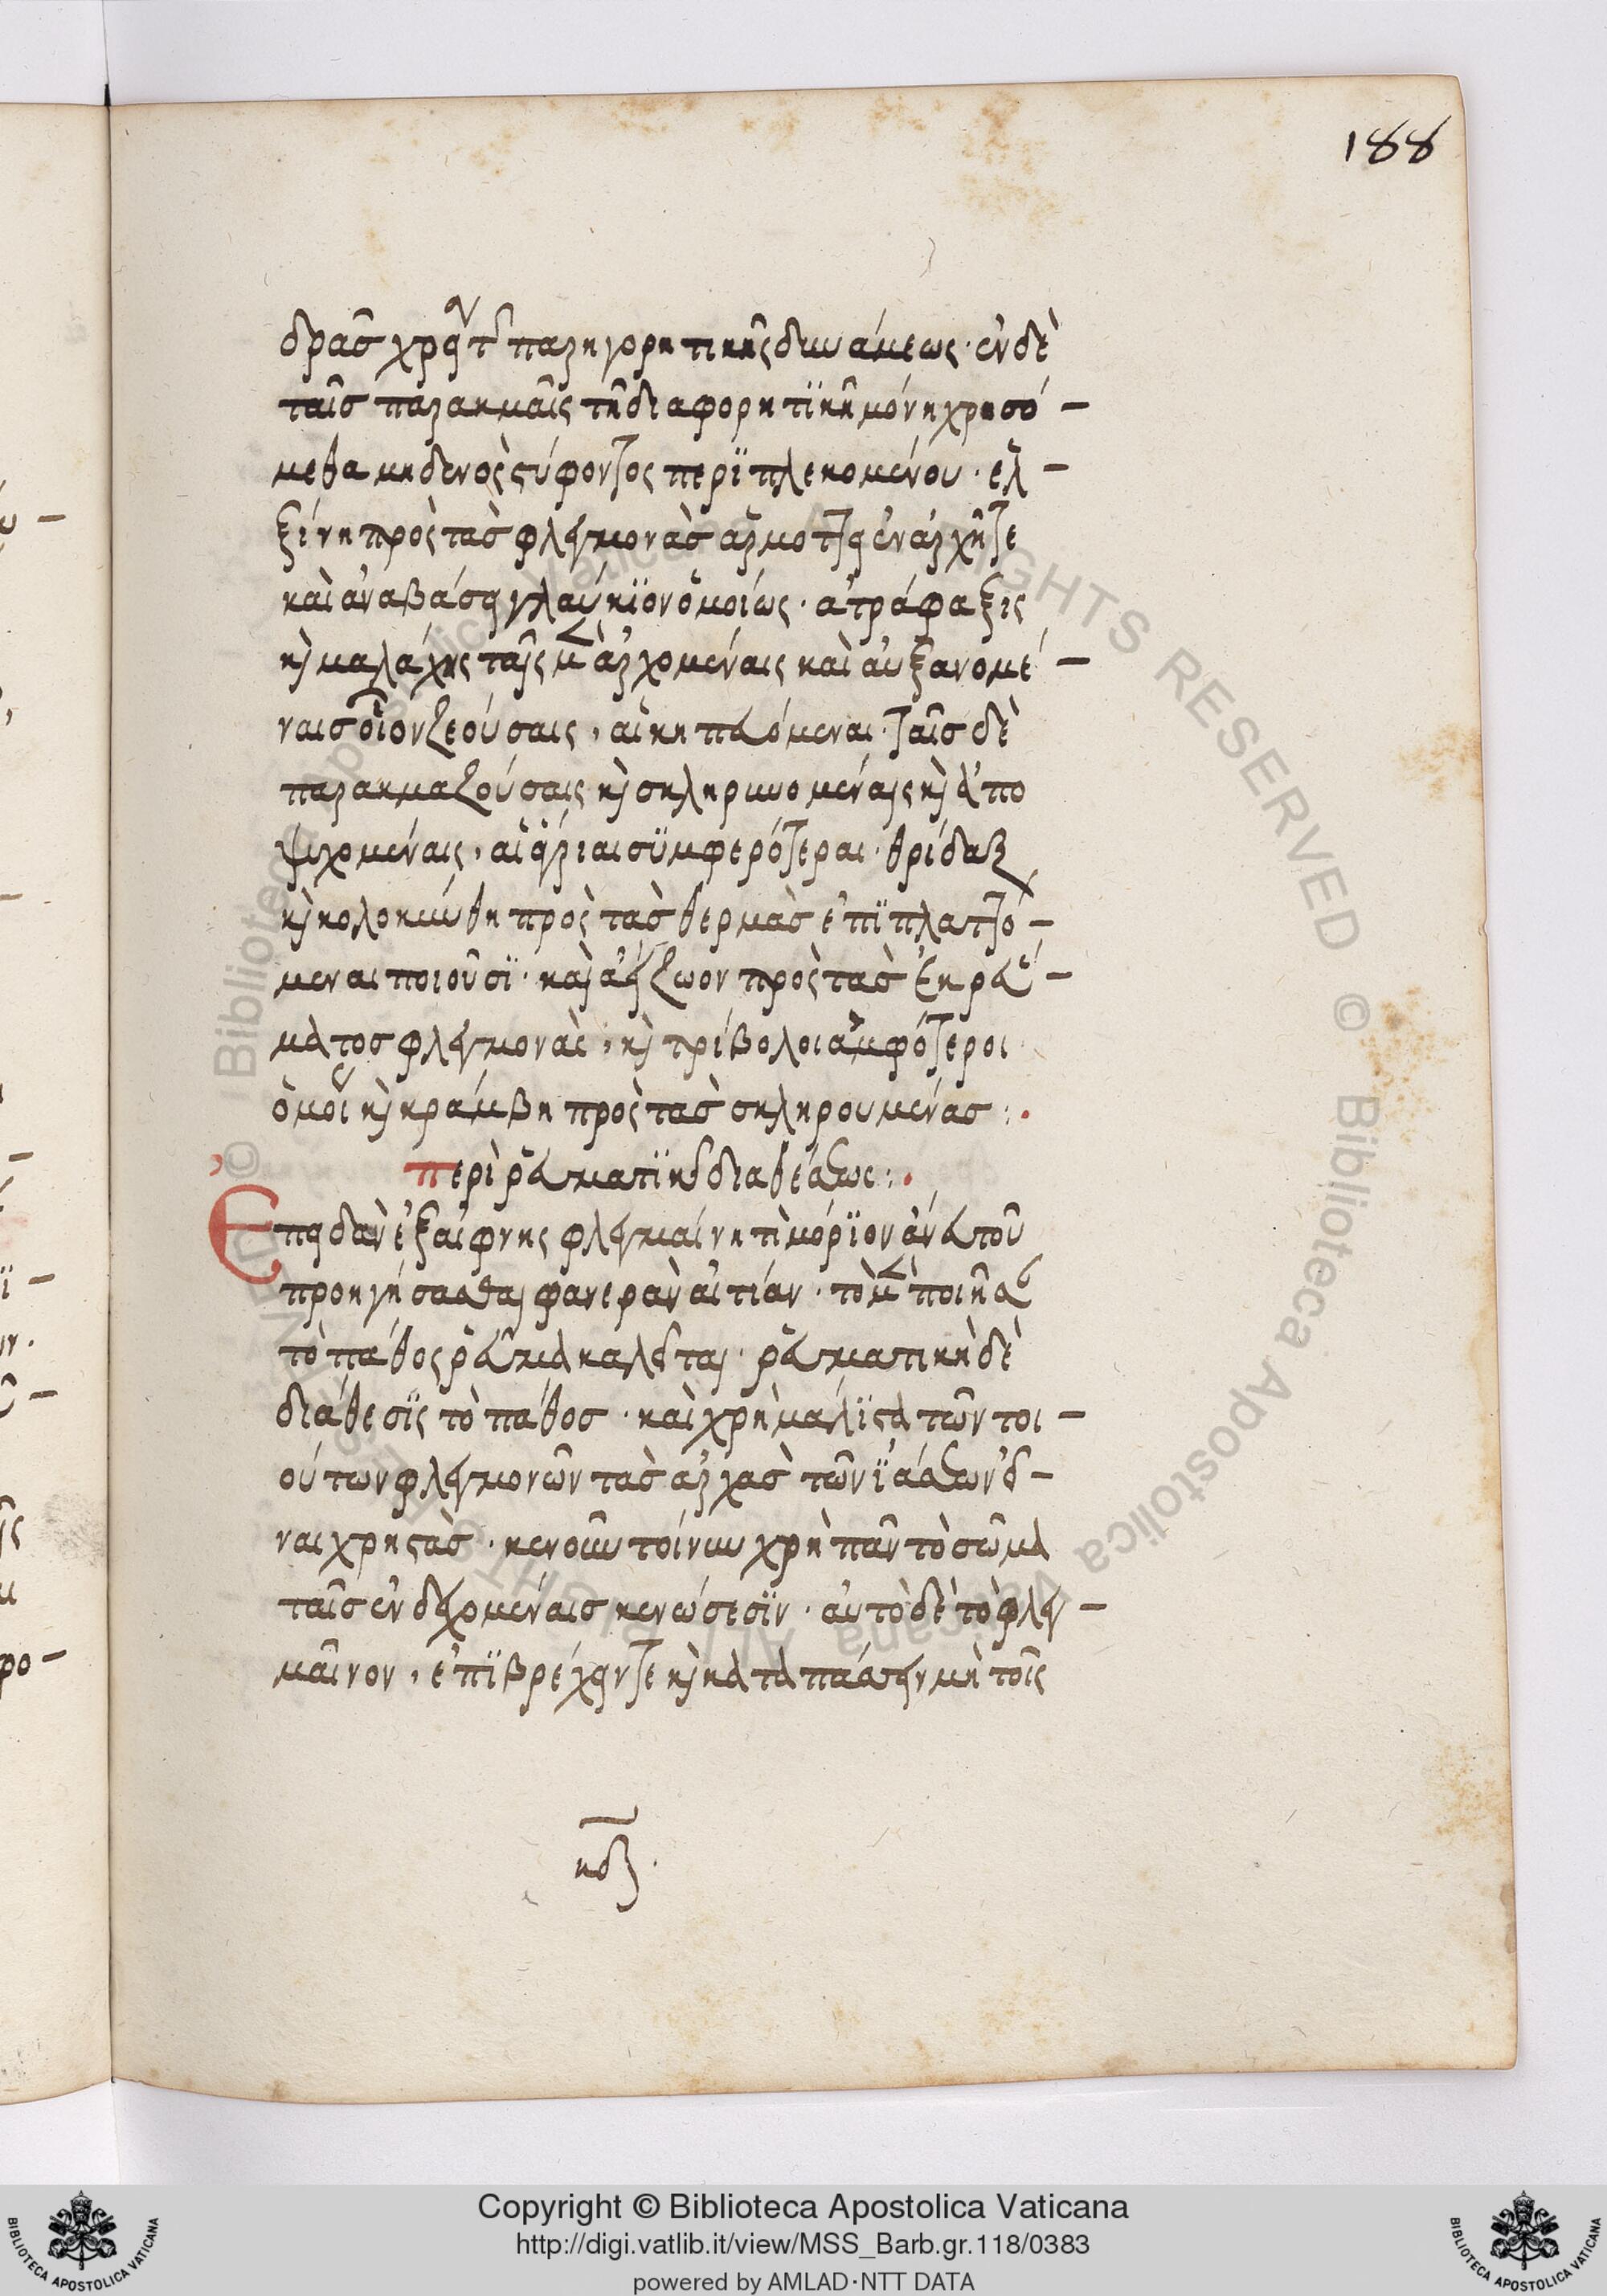 188
δρας χρεία τῆς παρηγορητικῆς δυνάμεως· ἐν δὲ
ταῖς παρακμαῖς τῇ διαφορητϊκῇ μόνῃ χρησό-
μεθα μηδενὸς στύφοντος περϊπλεκομένου· ἑλ-
ξίνη πρὸς τὰς φλεγμονὰς ἁρμόττει ἐν ἀρχῇ τε
καὶ ἀναβάσει γλαύκϊον ὁμοίως· ἀτράφαξις
καὶ μαλάχης ταῖς μὲν ἀρχομέναις καὶ αὐξανομέ-
ναις οἷον ζεούσαις, αἱ κηπευόμεναι· ταῖς δὲ
παρακμαζούσαις καὶ σκληρυνομέναις καὶ ἀπο
ψυχομέναις, αἱ ἄγριαι συμφερότεραι· θρίδαξ
καὶ κολοκύνθη πρὸς τὰς θερμὰς ἐπϊπλαττό-
μεναι ποιοῦσϊ· καὶ ἀείζωον πρὸς τὰς ἐκ ῥεύ-
ματος φλεγμονὰς, καὶ τρίβολοι ἀμφότεροι
ὁμοῦ καὶ κράμβη πρὸς τὰς σκληρουμένας:.
περὶ ῥευματϊκῆς διαθέσεως:.
Ἐπειδὰν ἐξαίφνης φλεγμαίνῃ τὶ μόρϊον ἄνευ τοῦ
προηγήσασθαι φανερὰν αἰτίαν· τὸ μὲν ποιῆσαν
τὸ πάθος ῥεῦμα καλεῖται· ῥευματικὴ δὲ
διάθεσϊς τὸ πάθος· καὶ χρὴ μάλϊστα τῶν τοι-
ούτων φλεγμονῶν τὰς ἀρχὰς τῶν ϊάσεων εἶ-
ναι χρηστὰς· κενοῦν τοίνυν χρὴ πᾶν τὸ σῶμα
ταῖς ἐνδεχομέναις κενώσεσϊν· αὐτὸ δὲ τὸ φλεγ-
μαῖνον, ἐπϊβρέχειν τε καὶ καταπάσσειν μὴ τοῖς
κδ.
Copyright © Biblioteca Apostolica Vaticana
http://digi.vatlib.it/view/MSS_Barb.gr.118/0383
powered by AMLAD·NTT DATA